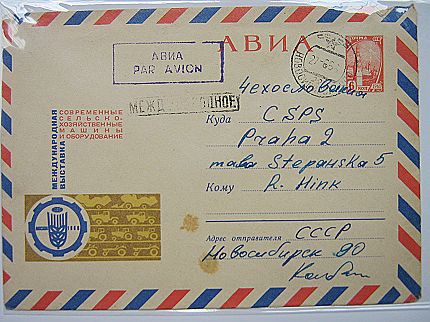 АВИА
PAR AVION
АВИА
МЕЖДУНАРОДНОЕ
МЕЖДУНАРОДНАЯ
ВЫСТАВКА
СОВРЕМЕННЫЕ
СЕЛЬСКО-
ХОЗЯЙСТВЕННЫЕ
МАШИНЫ
И ОБОРУДОВАНИЕ
Чехословакия
Куда ČSPS
Praha 2
Stepanska 5
Кому R. Hink
Адрес отправителя СССР
Новосибирск 90